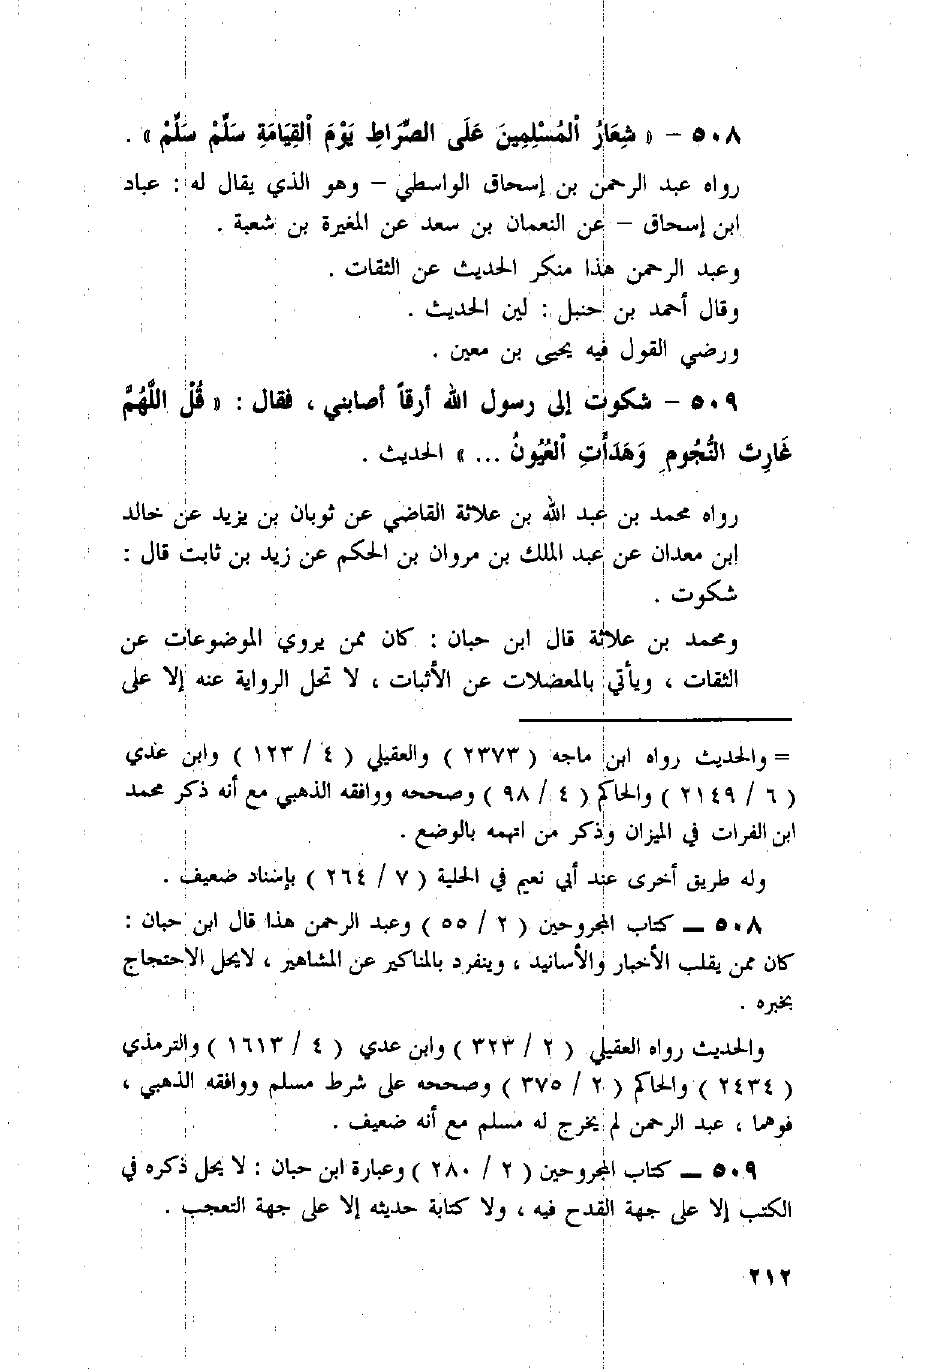 ٥٠٨ – « شِعَارُ ٱلمُسْلِمِينَ عَلَى الصِّرَاطِ يَوْمَ ٱلقِيَامَةِ سَلِّمْ سَلِّمْ » .
رواه عبد الرحمن بن إسحاق الواسطي – وهو الذي يقال له : عباد
ابن إسحاق – عن النعمان بن سعد عن المغيرة بن شعبة .
وعبد الرحمن هذا منكر الحديث عن الثقات .
وقال أحمد بن حنبل : لين الحديث .
ورضي القول فيه يحيى بن معين .
٥٠٩ – شكوت إلى رسول الله أرقاً أصابني ، فقال : « قُلْ اللَّهُمَّ
غَارِتَ النُّجُومِ وَهَدَأَتِ ٱلعُيُونُ ... » الحديث .
رواه محمد بن عبد الله بن علاثة القاضي عن ثوبان بن يزيد عن خالد
ابن معدان عن عبد الملك بن مروان بن الحكم عن زيد بن ثابت قال :
شكوت .
ومحمد بن علاثة قال ابن حبان : كان ممن يروي الموضوعات عن
الثقات ، ويأتي بالمعضلات عن الأثبات ، لا تحل الرواية عنه إلا على
= والحديث رواه ابن ماجه ( ٢٣٧٣ ) والعقيلي ( ٤ / ١٢٣ ) وابن عدي
( ٦ / ٢١٤٩ ) والحاكم ( ٤ / ٩٨ ) وصححه ووافقه الذهبي مع أنه ذكر محمد
ابن الفرات في الميزان وذكر من اتهمه بالوضع .
وله طريق أخرى عند أبي نعيم في الحلية ( ٧ / ٢٦٤ ) بإسناد ضعيف .
٥٠٨ ــ كتاب المجروحين ( ٢ / ٥٥ ) وعبد الرحمن هذا قال ابن حبان :
كان ممن يقلب الأخبار والأسانيد ، وينفرد بالمناكير عن المشاهير ، لايحل الاحتجاج
بخبره .
والحديث رواه العقيلي ( ٢ / ٣٢٣ ) وابن عدي ( ٤ / ١٦١٣ ) والترمذي
( ٢٤٣٤ ) والحاكم ( ٢ / ٣٧٥ ) وصححه على شرط مسلم ووافقه الذهبي ،
فوهما ، عبد الرحمن لم يخرج له مسلم مع أنه ضعيف .
٥٠٩ ــ كتاب المجروحين ( ٢ / ٢٨٠ ) وعبارة ابن حبان : لا يحل ذكره في
الكتب إلا على جهة القدح فيه ، ولا كتابة حديثه إلا على جهة التعجب .
٢١٢